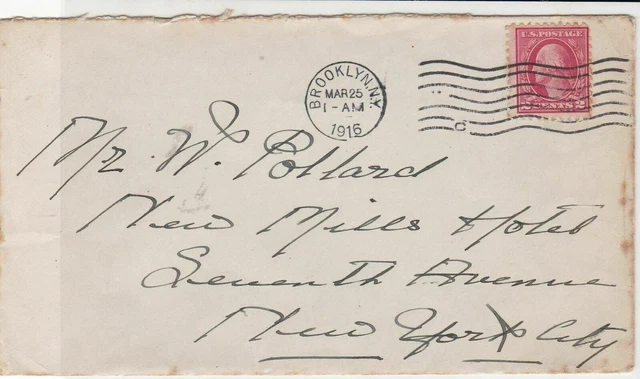 U.S. POSTAGE
2 CENTS 2
BROOKLYN, N.Y.
MAR 25
1 - AM
1916
Mr W. Pollard
New Mills Hotel
Seventh Avenue
New York City